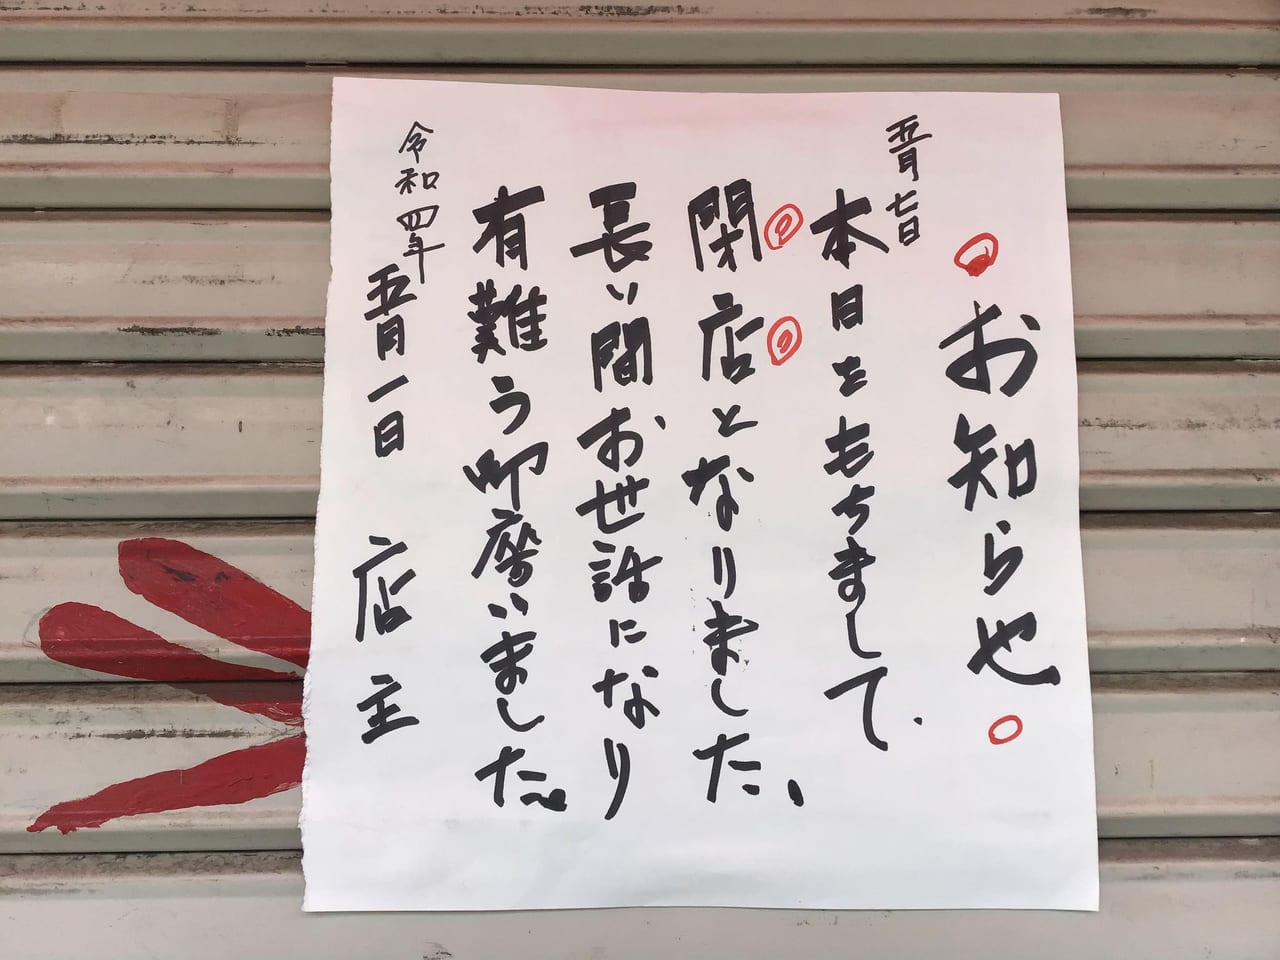 お知らせ
五月七日
本日をもちまして、
閉店となりました、
長い間お世話になり
有難う御座いました。
令和四年
五月一日 店主